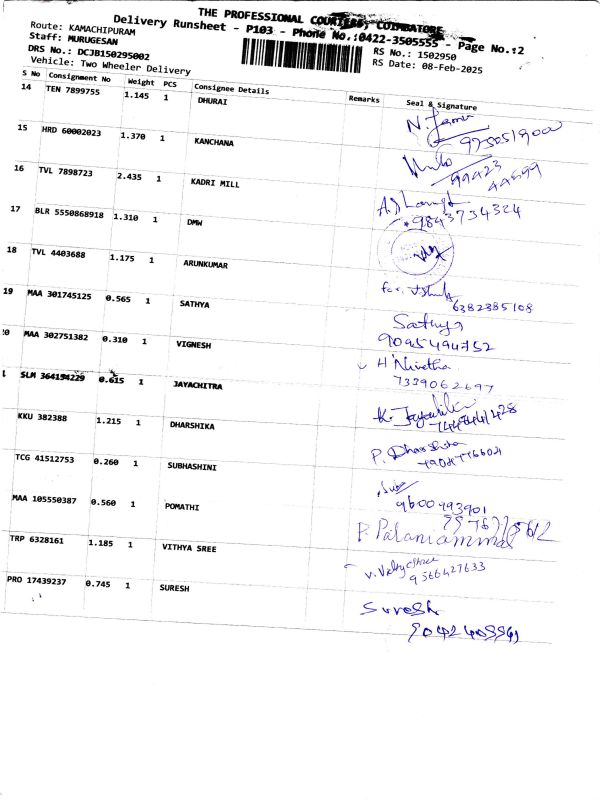 THE PROFESSIONAL COURIERS, COIMBATORE
Delivery Runsheet - P103 - Phone No.:0422-3505555 - Page No.:2
Route: KAMACHIPURAM
RS No.: 1502950
Staff: MURUGESAN
RS Date: 08-Feb-2025
DRS No.: DCJB150295002
Vehicle: Two Wheeler Delivery
S No Consignment No Weight PCS Consignee Details Remarks Seal & Signature
14 TEN 7899755 1.145 1 DHURAI
15 HRD 60002023 1.370 1 KANCHANA
99423
44599
16 TVL 7898723 2.435 1 KADRI MILL
9843734324
17 BLR 5550868918 1.310 1 DMW
18 TVL 4403688 1.175 1 ARUNKUMAR
for.
6382385108
19 MAA 301745125 0.565 1 SATHYA
Sathya
9095494752
0 MAA 302751382 0.310 1 VIGNESH
H Nivetha
7339062697
SLM 364154229 0.615 1 JAYACHITRA
K.
KKU 382388 1.215 1 DHARSHIKA
P. Dharshika
TCG 41512753 0.260 1 SUBHASHINI
9600493901
MAA 105550387 0.560 1 POMATHI
P. Palaniammal
TRP 6328161 1.185 1 VITHYA SREE
V. Vidhyashree
9566427633
PRO 17439237 0.745 1 SURESH
Suresh